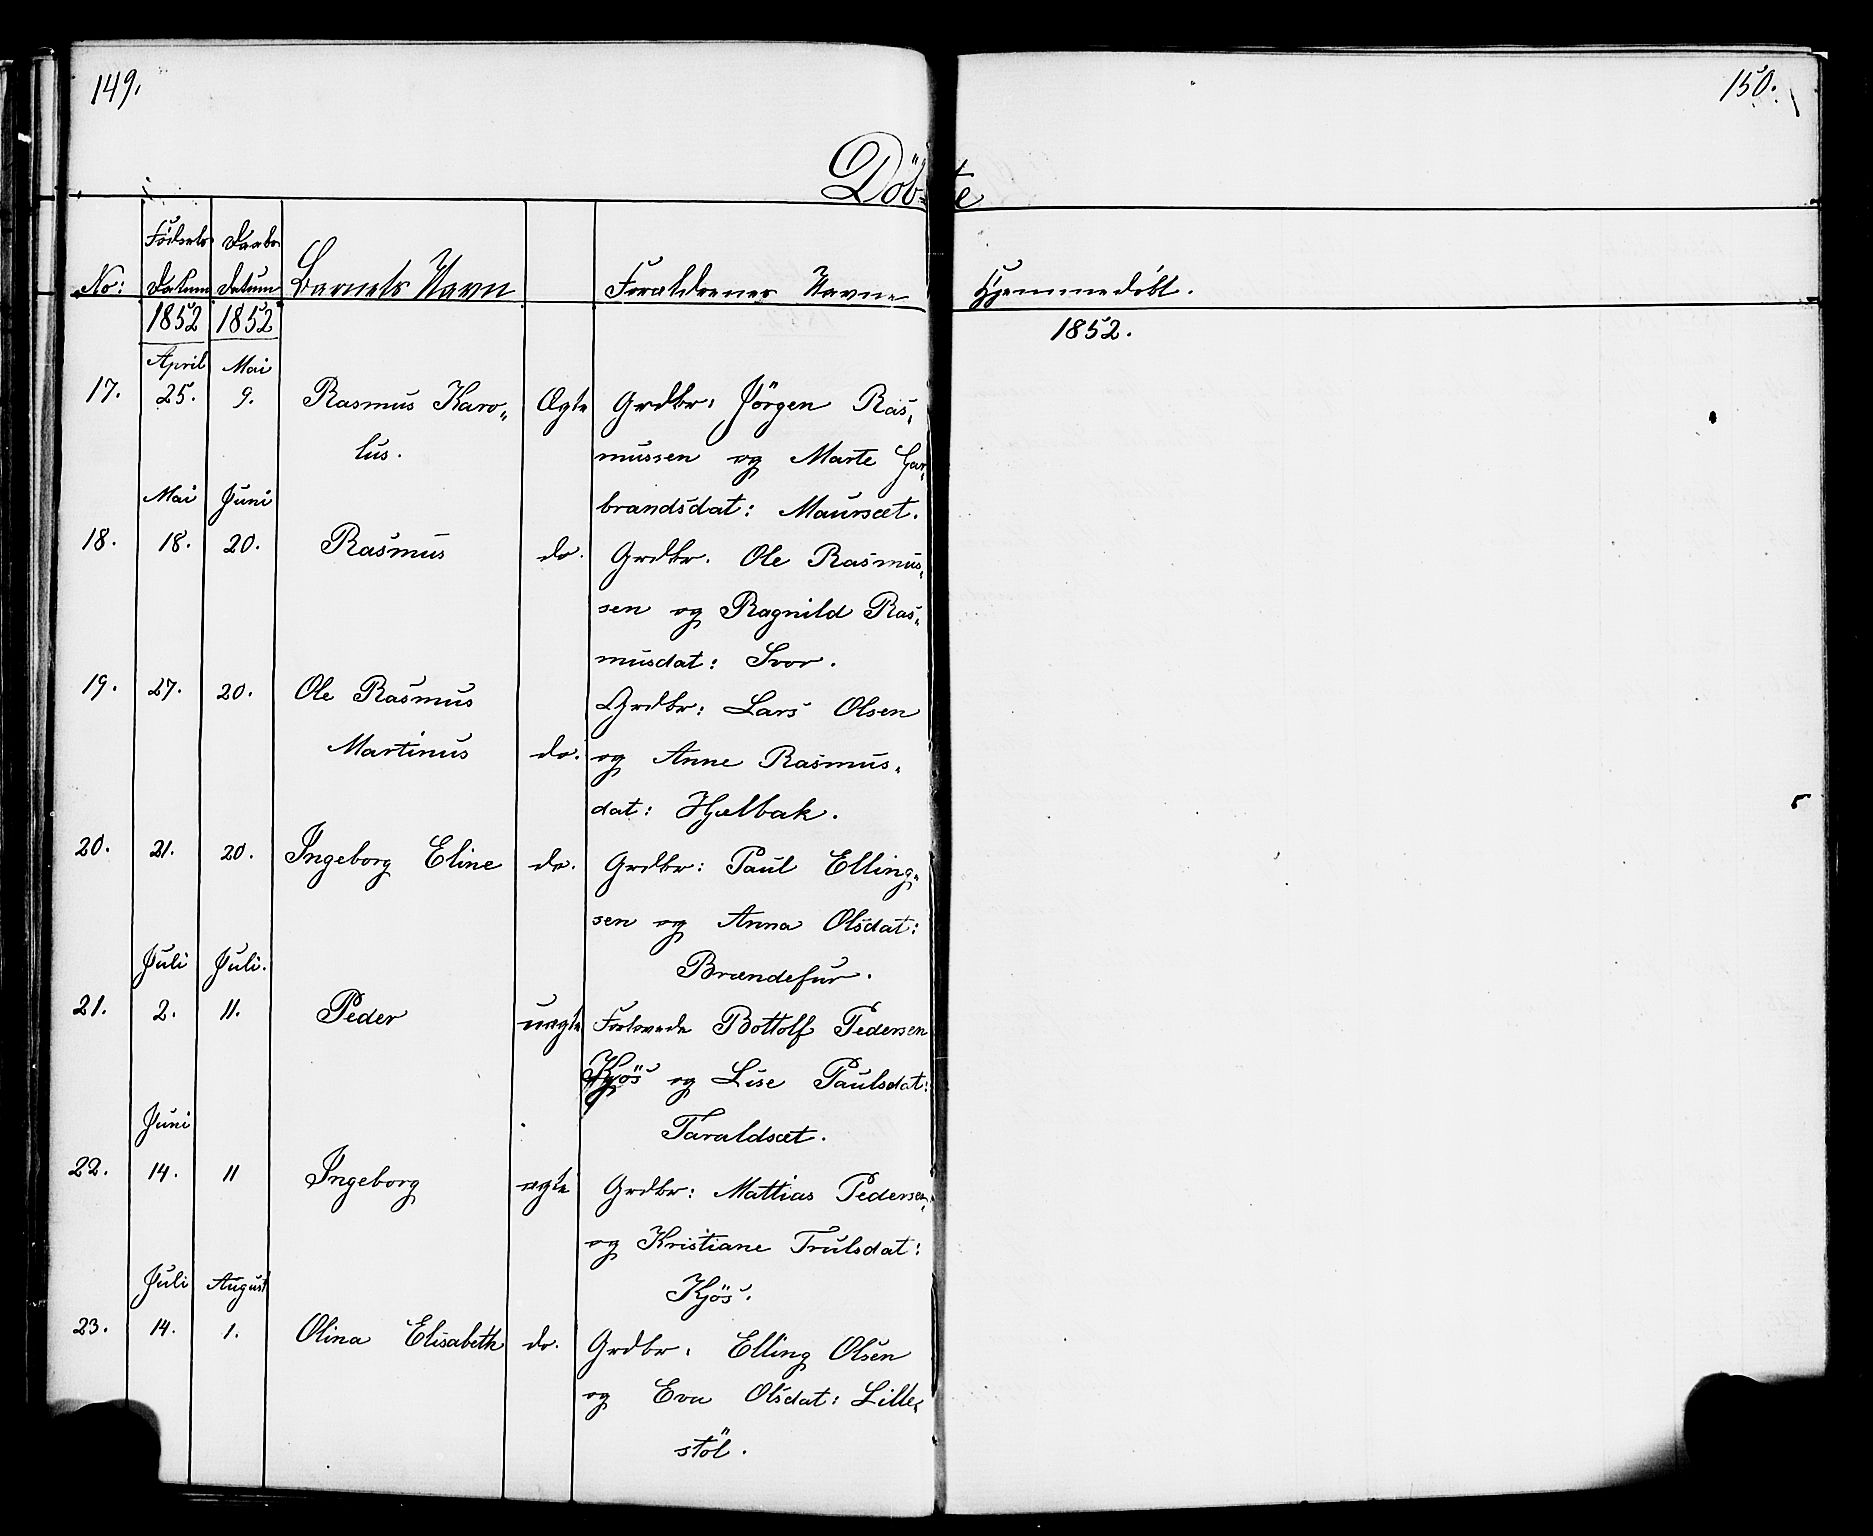 149.
150.
Döbte
No: Födsels Datum Daabs Datum Barnets Navn Forældrenes Navne Hjemmedöbt.
1852 1852 1852.
April Mai
17. 25. 9. Rasmus Karo- Ægte Grdbr: Jörgen Ras-
lus. mussen og Marte Gar-
Mai Juni brandsdat: Maursæt.
18. 18. 20. Rasmus do. Grdbr. Ole Rasmus-
sen og Ragnild Ras-
musdat: Svor.
19. 27. 20. Ole Rasmus Grdbr: Lars Olsen
Martinus do. og Anne Rasmus-
dat: Hjelbak.
20. 21. 20. Ingeborg Eline do. Grdbr: Paul Elling-
sen og Anna Olsdat:
Juli Juli. Brændefur.
21. 2. 11. Peder uægte Forlovede Bottolf Pedersen
Kjös og Lise Paulsdat:
Juni Taraldsæt.
22. 14. 11 Ingeborg ægte Grdbr: Mattias Pedersen
og Kristiane Trulsdat:
Juli August Kjös.
23. 14. 1. Olina Elisabeth do. Grdbr: Elling Olsen
og Eva Olsdat: Lille-
stöl.